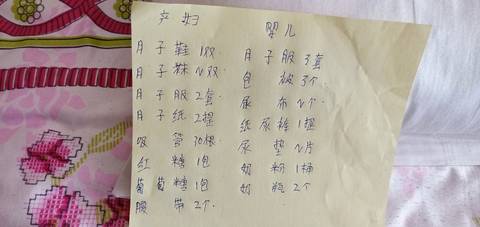 产妇
婴儿
月子鞋1双
月子袜N双
月子服2套
月子纸2提
吸管30根
红糖1包
葡萄糖1包
腰带2个
月子服3套
包被3个
尿布N个
纸尿裤1提
尿垫N片
奶粉1桶
奶瓶2个